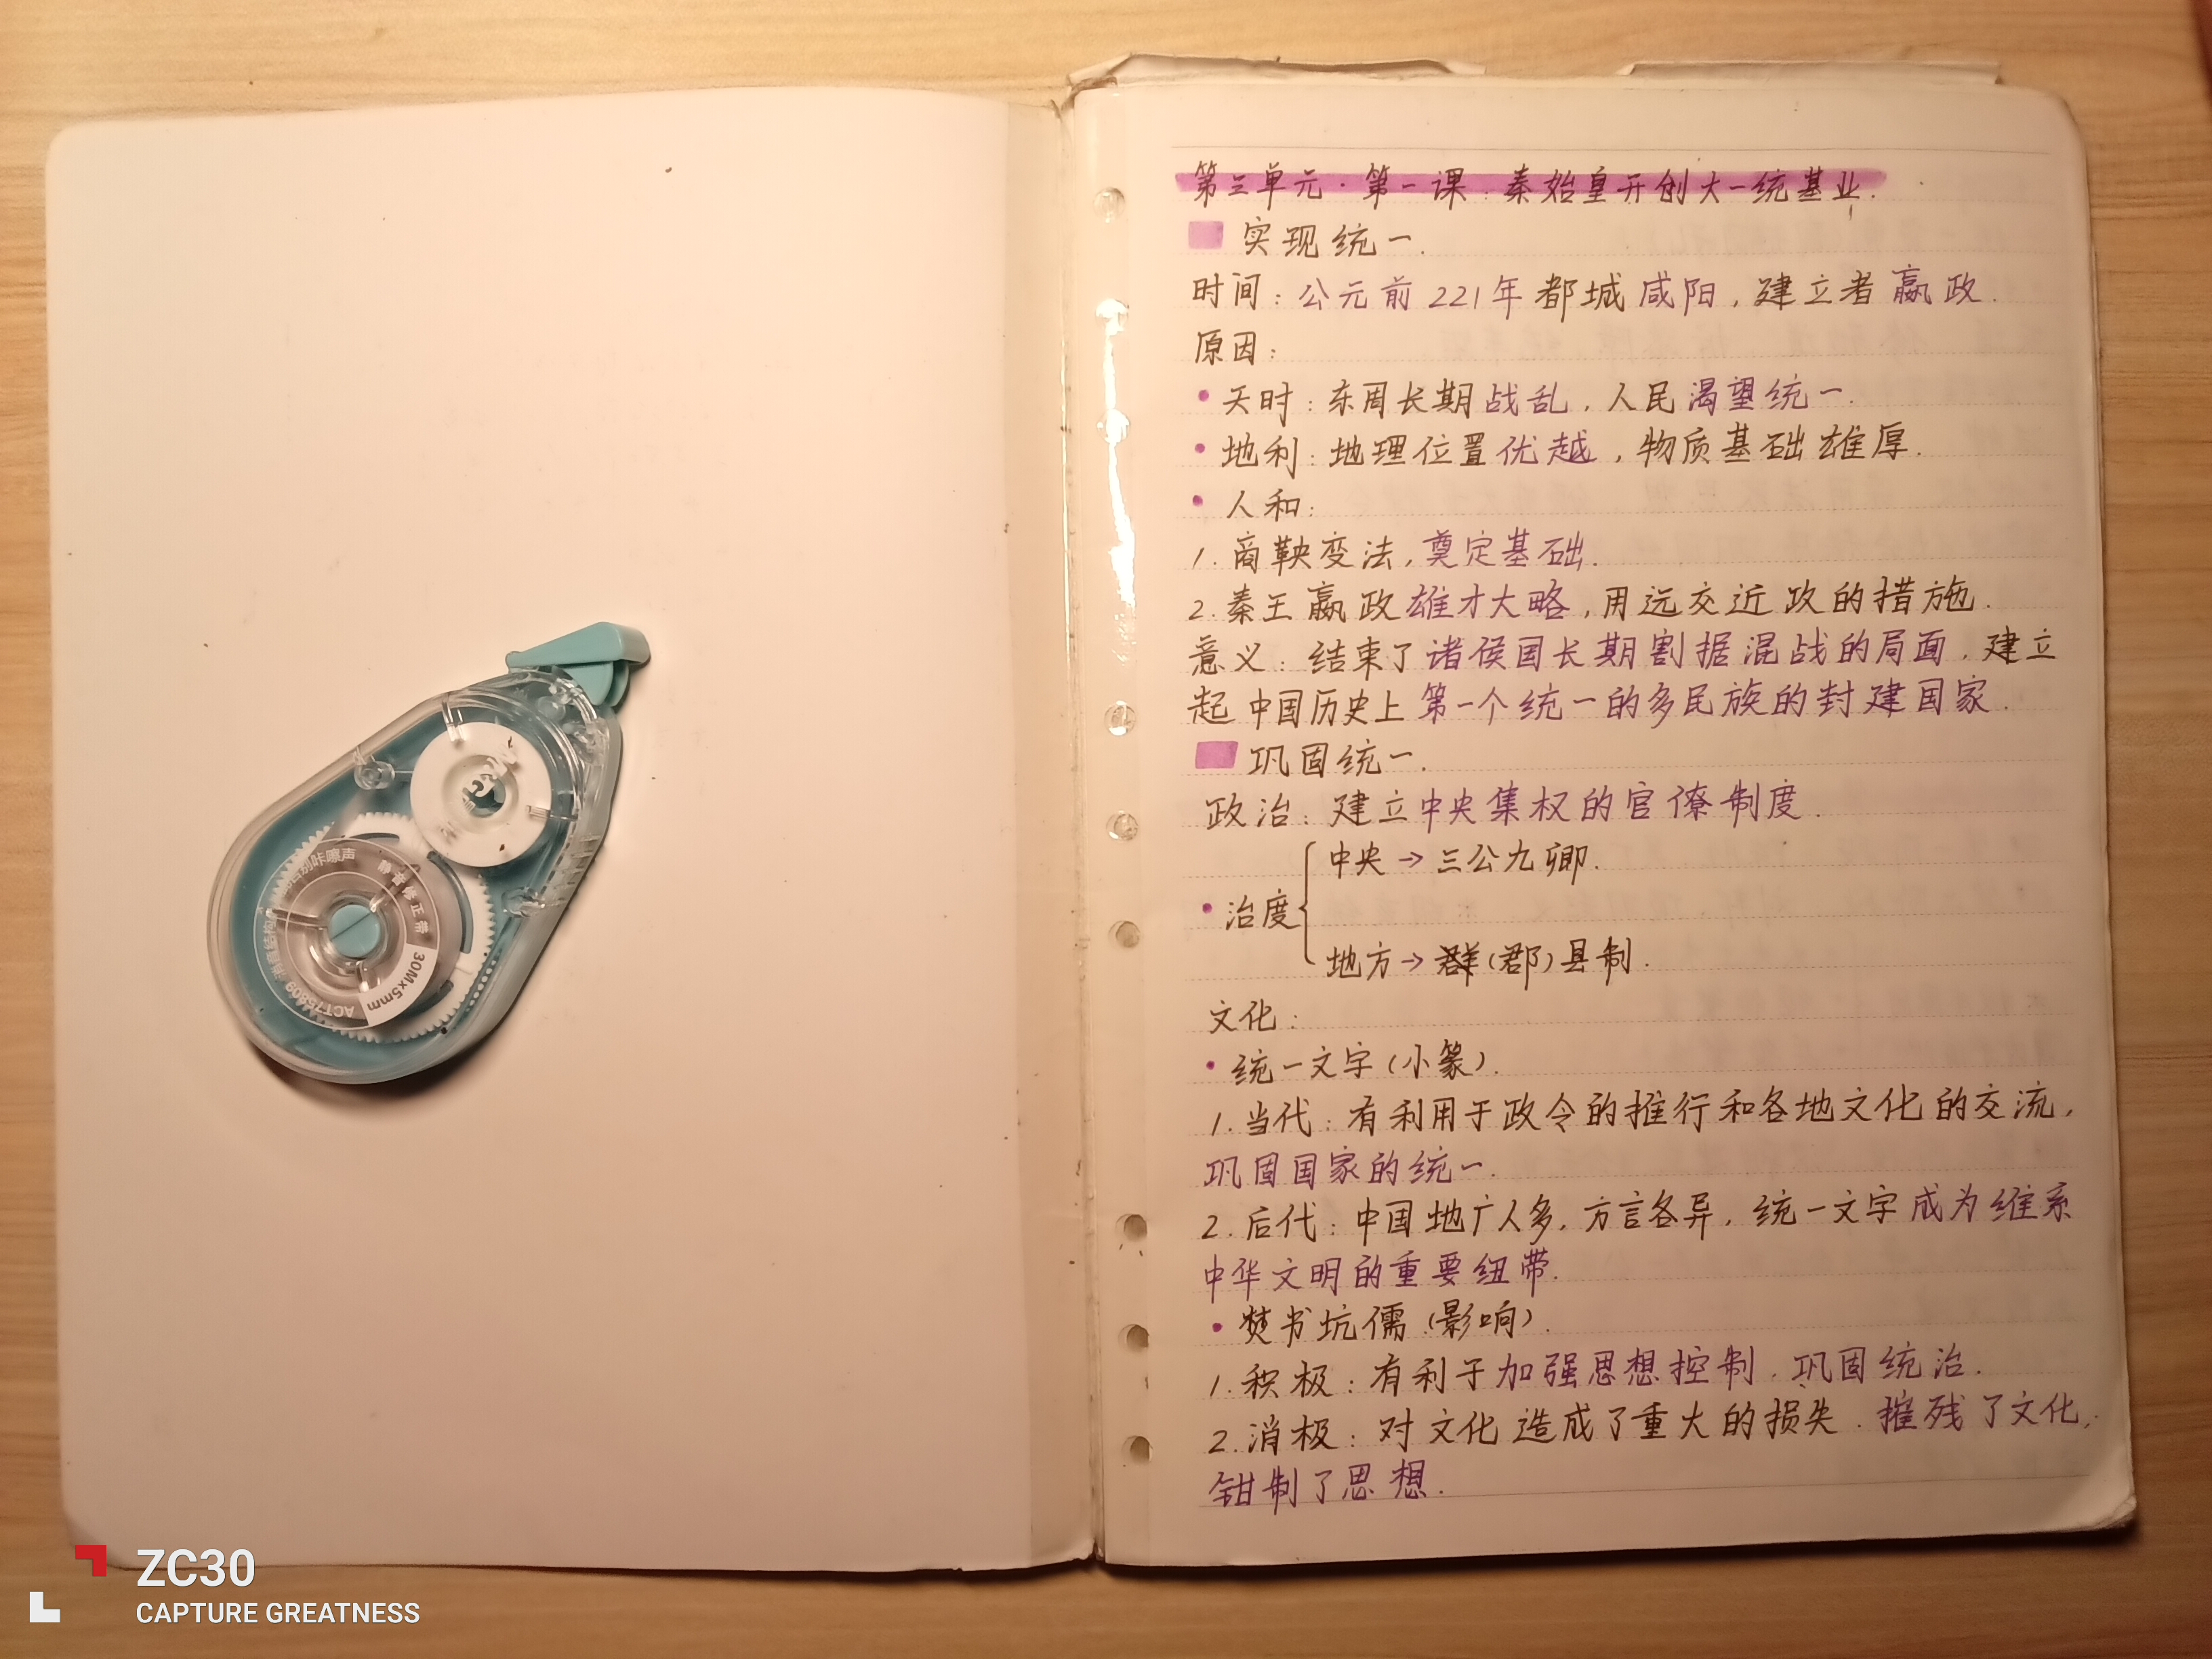 第三单元·第一课:秦始皇开创大一统基业.
实现统一.
时间:公元前221年 都城咸阳,建立者嬴政.
原因:
·天时:东周长期战乱,人民渴望统一.
·地利:地理位置优越,物质基础雄厚.
·人和:
1.商鞅变法,奠定基础.
2.秦王嬴政雄才大略,用远交近政的措施.
意义:结束了诸侯国长期割据混战的局面,建立
起中国历史上第一个统一的多民族的封建国家.
巩固统一.
政治:建立中央集权的官僚制度.
中央→三公九卿.
·治度
地方→群(郡)县制.
文化:
·统一文字(小篆).
1.当代:有利用于政令的推行和各地文化的交流,
巩固国家的统一.
2.后代:中国地广人多,方言各异,统一文字成为维系
中华文明的重要纽带.
·焚书坑儒(影响).
1.积极:有利于加强思想控制.巩固统治.
2.消极:对文化造成了重大的损失.摧残了文化,
钳制了思想.
静音修正带
30M×5mm
ACT75809
ZC30
CAPTURE GREATNESS